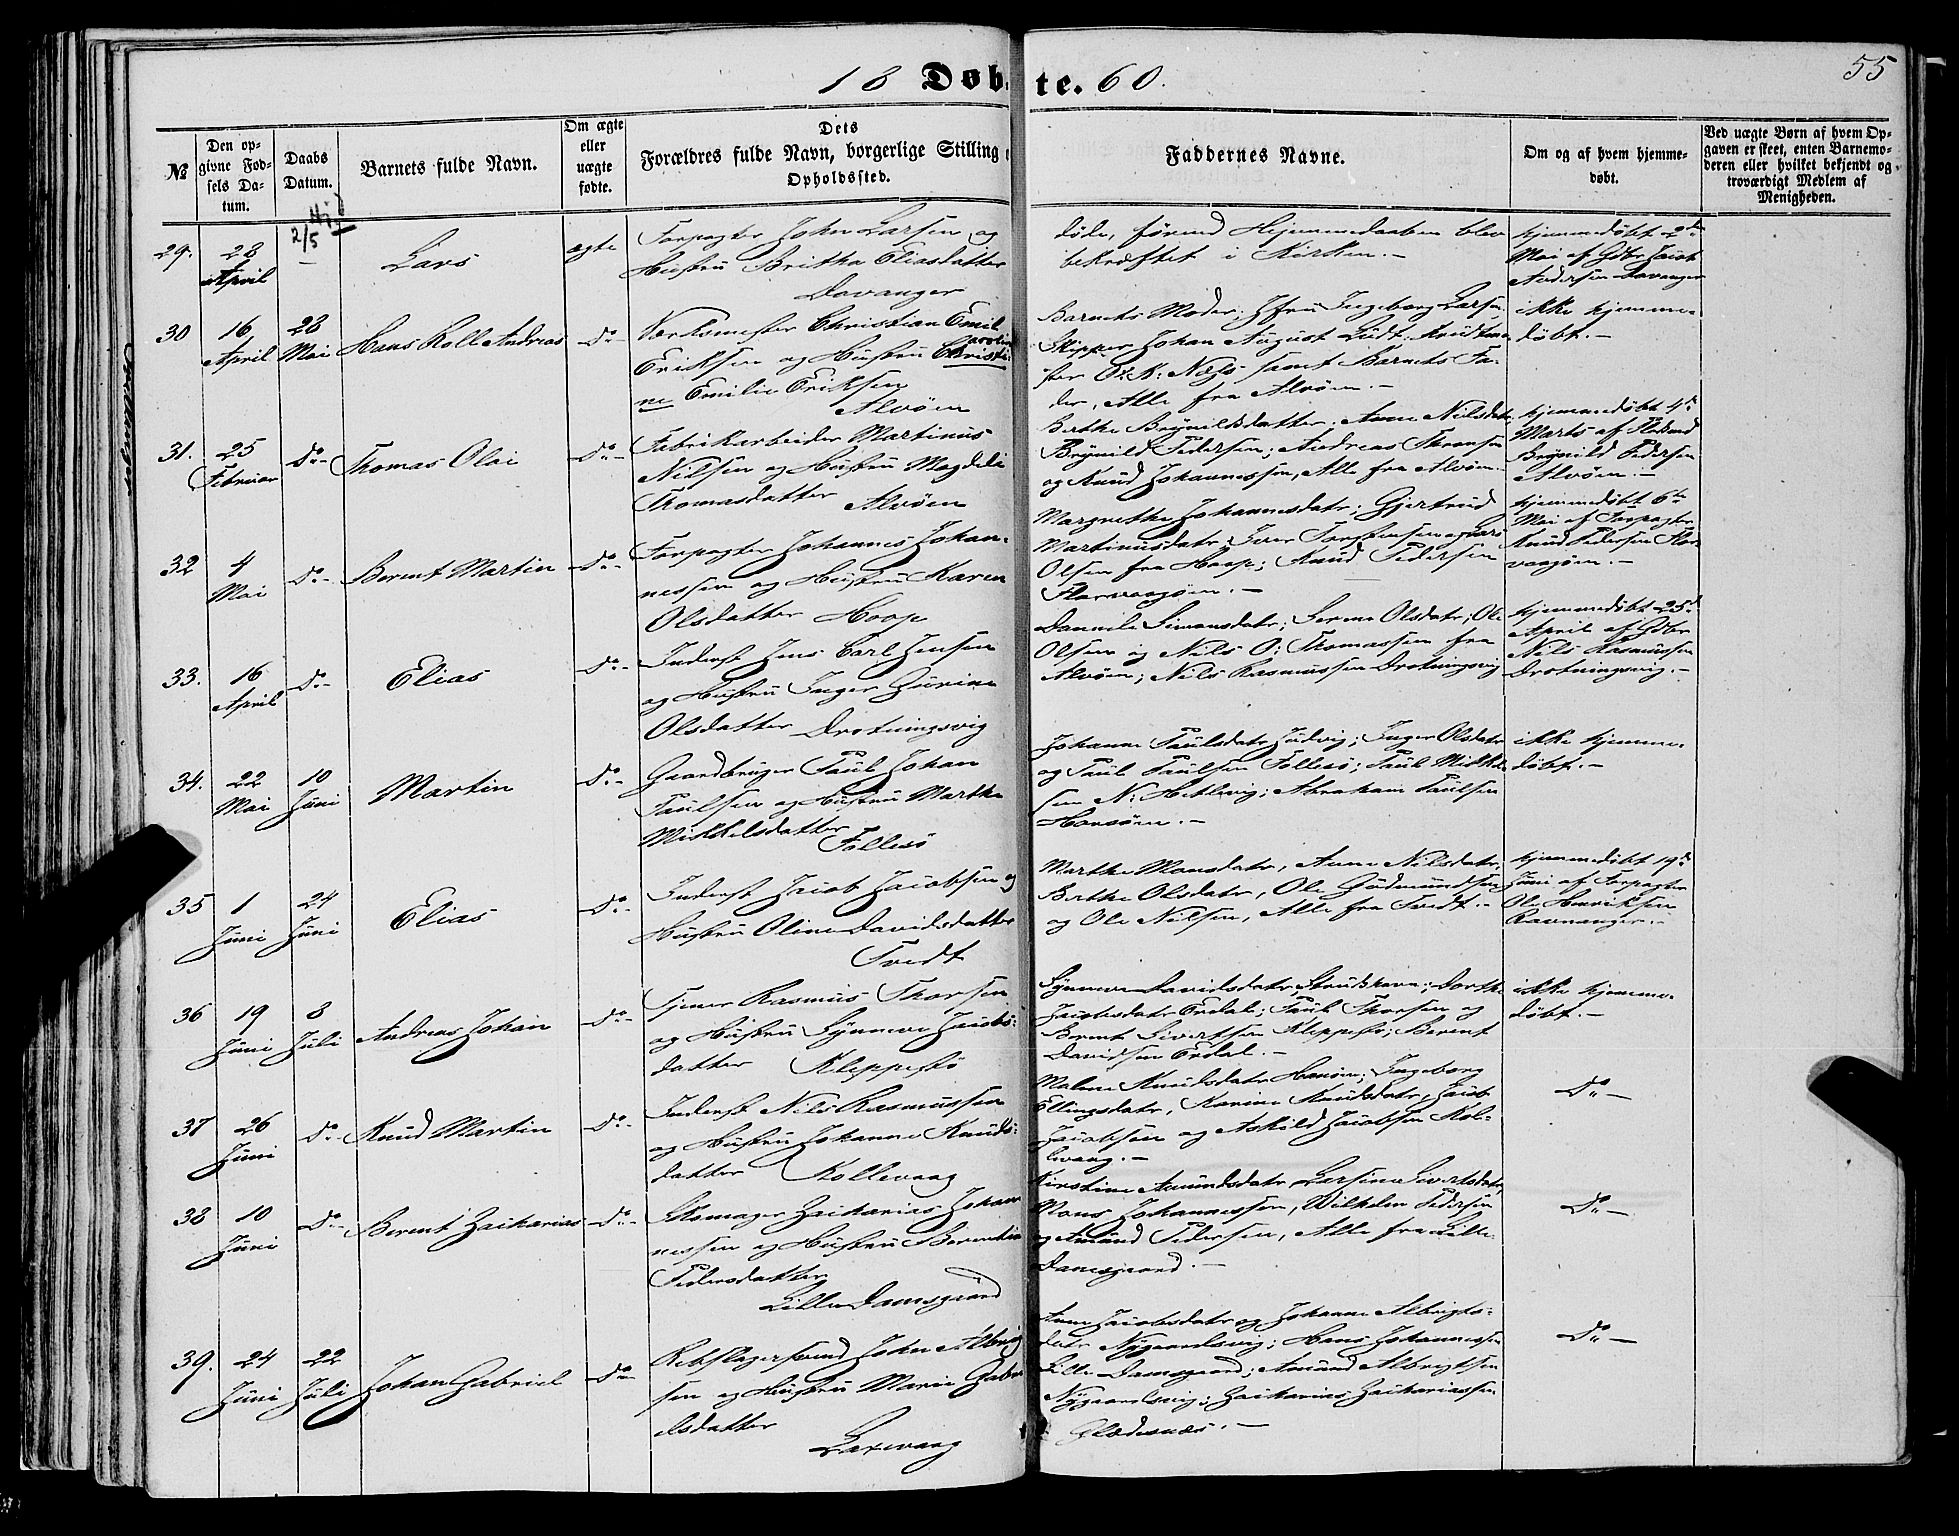 18 Døbte. 60.
55
№
Den opgivne Fødsels Datum.
Daabs Datum.
Barnets fulde Navn.
Om ægte eller uægte fødte.
Dets Forældres fulde Navn, borgerlige Stilling
Opholdssted.
Faddernes Navne.
Om og af hvem hjemmedøbt.
Ved uægte Børn af hvem Opgaven er skeet, enten Barnemoderen eller hvilket bekjendt og troværdigt Medlem af Menigheden.
29.
28 April
2/5
Lars
ægte
Forpagter John Larsen og
Hustru Britha Eliasdatter
Davanger
døde, førend Hjemmedaaben blev
bekræftet i Kirken.-
hjemmedøbt 2de
Mai af Gdbr Jacob
Andersen Davanger
30
16 April
28 Mai
Hans Rolle Andreas
Do-
Værksmester Christian Emil
Eriksen og Hustru
Emilie Eriksen
Alvøen
Barnets Moder; Jfru Ingeborg Larsen
Skipper Johan August Lüdt.
O: K: Næss samt Barnets Fa-
der, Alle fra Alvøen.-
ikke hjemme-
døbt.-
31.
25 Februar
Do-
Thomas Olai
Do-
Fabrikarbeider Martinus
Nilsen og Hustru Magdeli
Thomasdatter Alvøen
Berthe Brynildsdatter; Anne Nilsdatr
Brynild Pedersen; Andreas Thronsen
og Knud Johannessen, Alle fra Alvøen.
hjemmedøbt 4de
Marts af
Brynild Pedersen
Alvøen.-
32
4 Mai
Do-
Berent Martin
Do-
Forpagter Johannes Johan-
nessen og Hustru Karen
Olsdatter Hoop
Margrethe Johannesdatr; Gjertrud
Martinusdatr; Iver Torstensen og Lars
Olsen fra Hoop; Knud Pedersen
Florvaagøen.-
hjemmedøbt 6te
Mai af Forpagter
Knud Pedersen Flor-
vaagøen.-
33.
16 April
Do-
Elias
Do-
Inderst Jens Carl Jensen
og Hustru Inger Gurine
Olsdatter Drotningsvig
Simonsdatr; Serine Olsdatr; Ole
Olsen og Nils O: Thomassen fra
Alvøen; Nils Rasmussen Drotningsvig
hjemmedøbt 25de
April af Gdbr
Nils Rasmussen
Drotningsvig.-
34.
22 Mai
10 Juni
Martin
Do-
Gaardbruger Paul Johan
Paulsen og Hustru Marthe
Mikkelsdatter
Follesø
Johanne Paulsdatr; Inger Olsdatr
og Paul Paulsen Follesø; Paul Mikkel-
sen N: Hetlevig; Abraham Paulsen
Hansøen.-
ikke hjemme-
døbt.-
35
1 Juni
24 Juni
Elias
Do-
Inderst Jacob Jacobsen og
Hustru Oline Davidsdatter
Tvedt
Marthe Monsdatr, Anne Nilsdatr,
Berthe Olsdatr, Ole Gudmundsen
og Ole Nilsen, Alle fra Tvedt.-
hjemmedøbt 19de
Juni af Forpagter
Ole Henriksen
Ravnanger.-
36
19 Juni
8 Juli
Andreas Johan
Do-
Tjener Rasmus Thorsen
og Hustru Synneve Jacobs-
datter Kleppestø
Synneve Davidsdatr Strudshavn; Dorthe
Jacobsdatr Erdal; Paul Thorsen og
Berent Sivertsen Kleppestø; Berent
Davidsen Erdal.-
ikke hjemme-
døbt.-
37
26 Juni
Do-
Knud Martin
Do-
Inderst Nils Rasmussen
og Hustru Johanne Knuds-
datter Kollevaag
Malene Knudsdatr Hanøen; Ingeborg
Ellingsdatr, Karine Knudsdatr, Jacob
Jacobsen og Askild Jacobsen Kol-
levaag.-
Do-
38
10 Juni
Do-
Berent Zacharias
Do-
Skomager Zacharias Johan-
nessen og Hustru Berentine
Pedersdatter
Lille Damsgaard
Kirstine Amundsdatr, Larsine Sivertsdatr,
Mons Johannessen, Wilhelm Pedersen
og Amund Pedersen, Alle fra Lille
Damsgaard.-
Do-
39.
24 Juni
22 Juli
Johan Gabriel
Do-
Rebslagersvend John Albrigt-
sen og Hustru Marie Gabri-
elsdatter
Laxevaag
Anne Jacobsdatr og Johanne Albrigts-
datr Nygaardsvig; Hans Johannessen
Lille Damsgaard; Amund Albrigtsen
Nygaardsvig; Zacharias Zachariassen
Gladesnæs.-
Do-